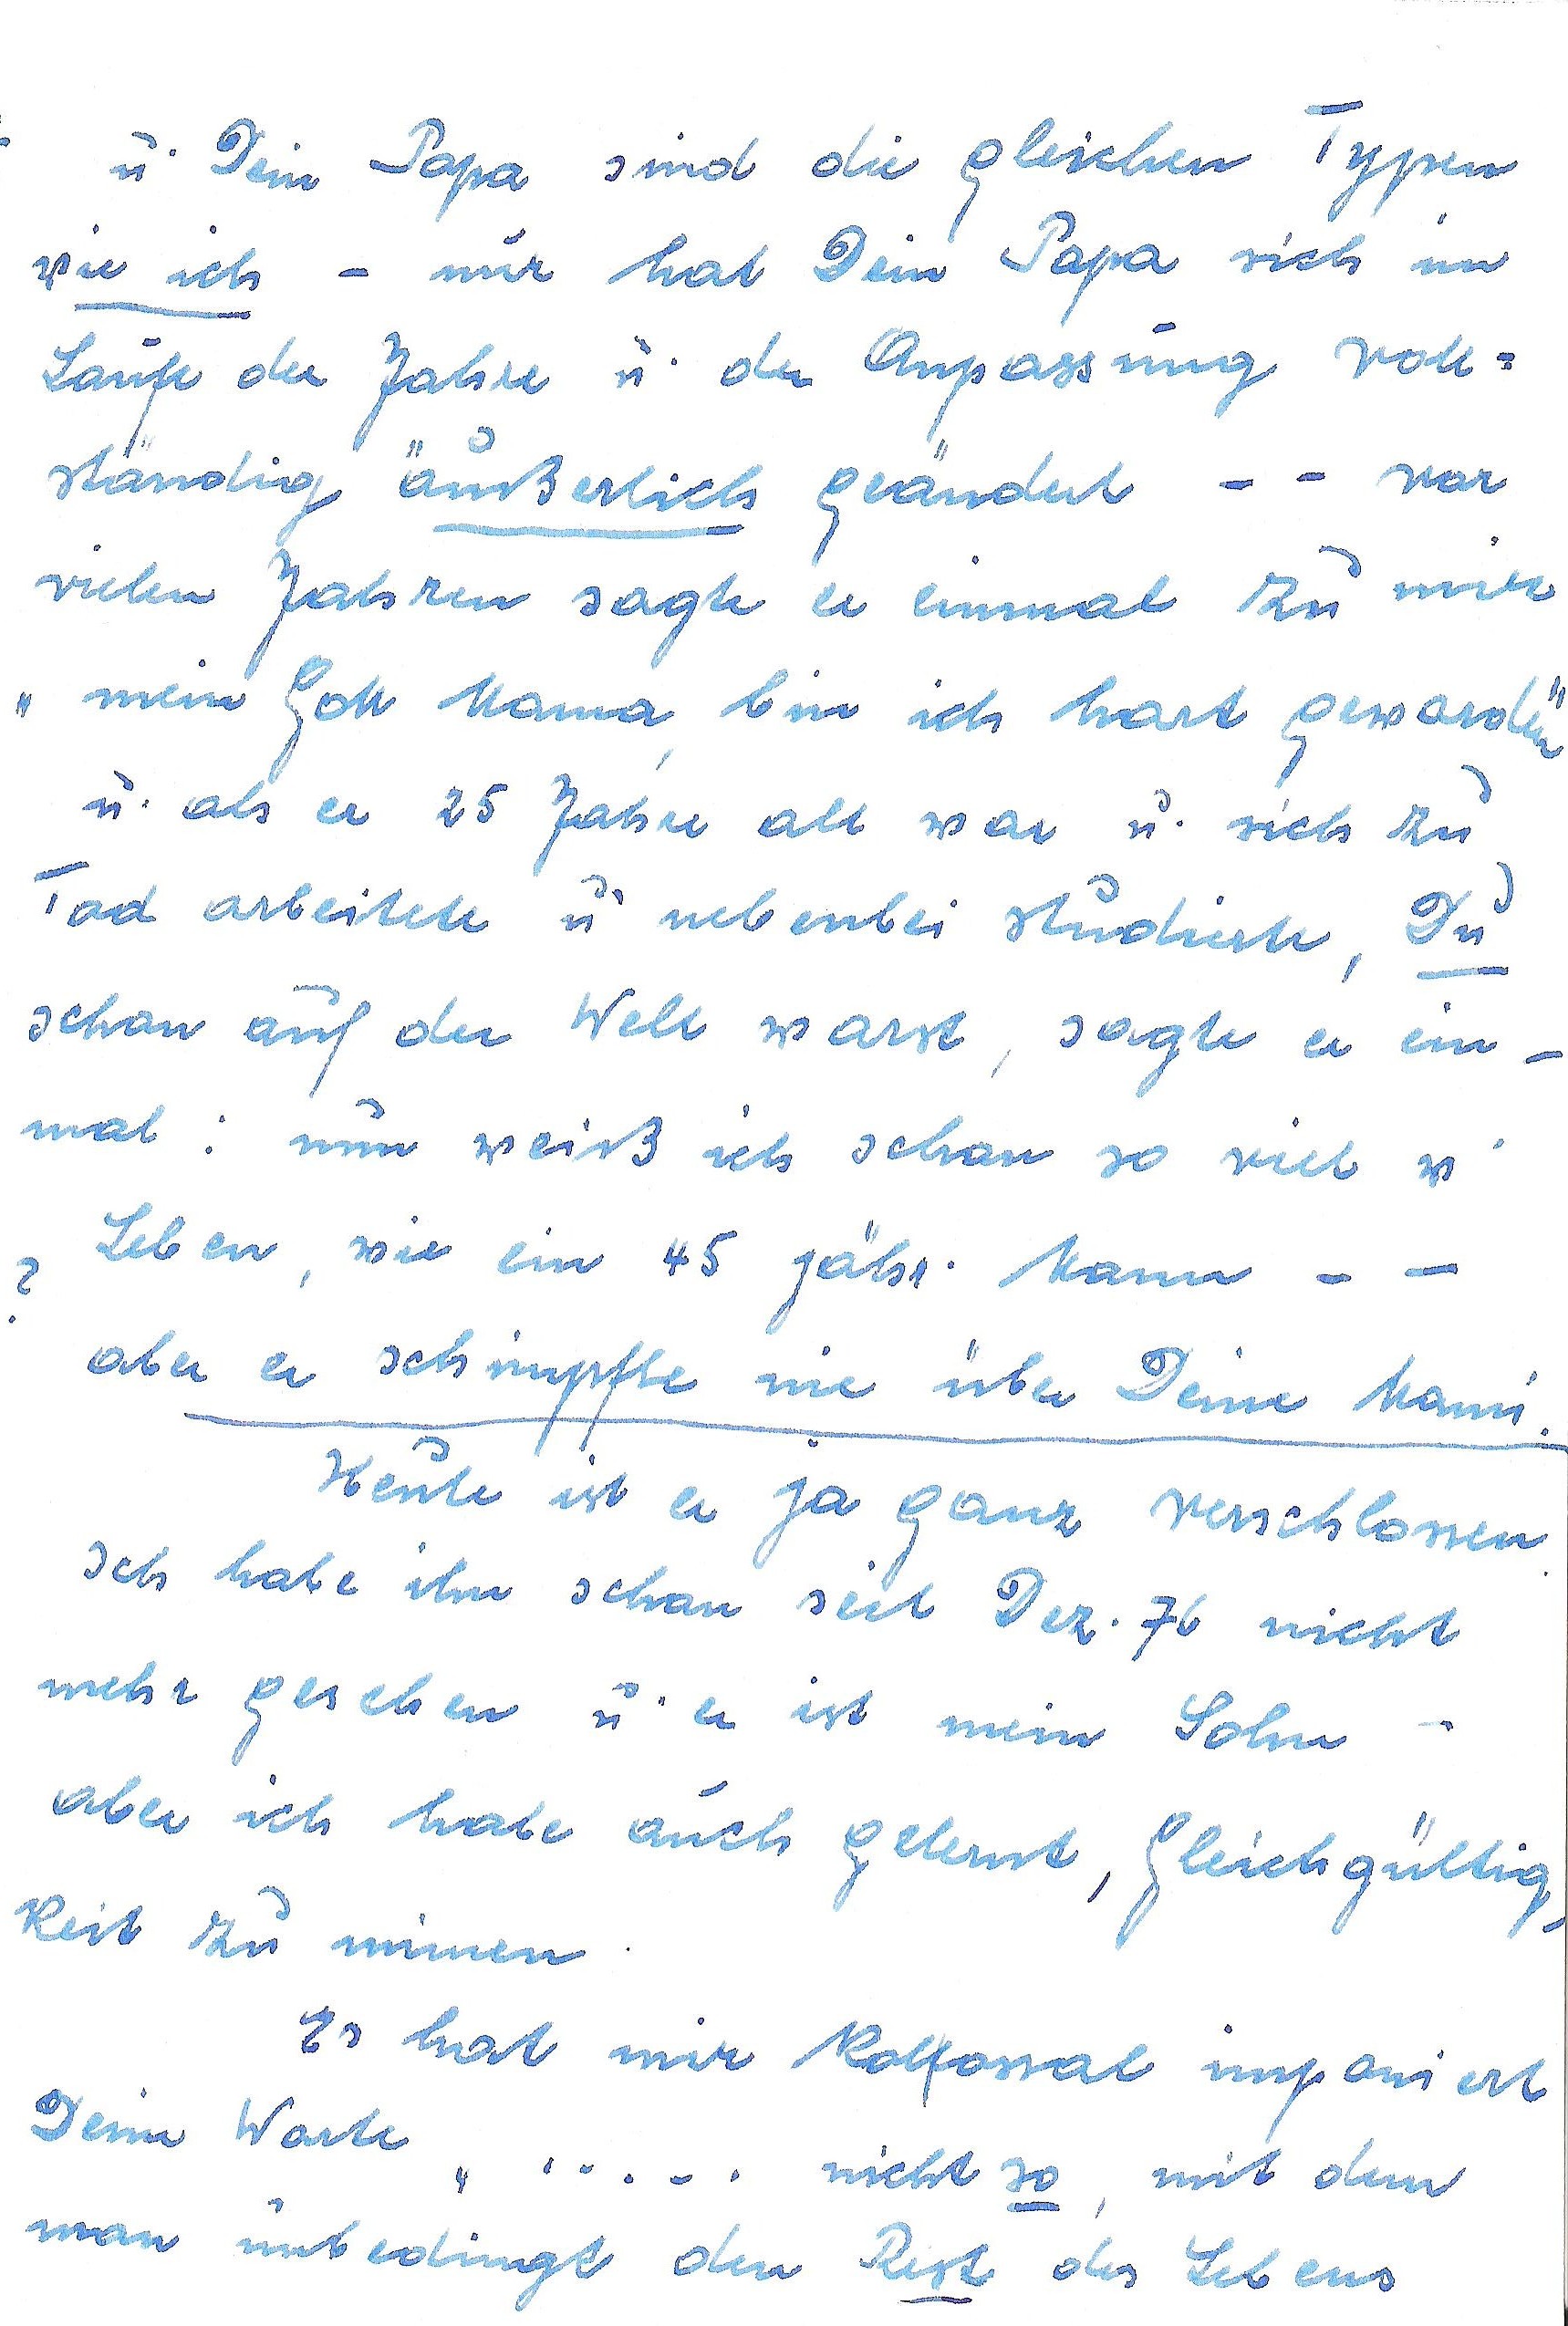 u. Dein Papa sind die gleichen Typen
wie ich - nur hat Dein Papa sich im
Laufe der Jahre u. der Anpassung voll=
ständig äußerlich geändert - - vor
vielen Jahren sagte er einmal zu mir
" mein Gott Mama, bin ich hart geworden"
u. als er 25 Jahre alt war u. sich zu
Tod arbeitete u. nebenbei studierte, Du
schon auf der Welt warst, sagte er ein-
mal : nun weiß ich schon so viel v.
? Leben, wie ein 45 jähr. Mann - -
aber er schimpfte nie über Deine Mami.
Heute ist er ja ganz verschlossen.
Ich habe ihn schon seit Dez. 76 nicht
mehr gesehen u. er ist mein Sohn -
aber ich habe auch gelernt, Gleichgültig-
keit zu mimen.
Es hat mir kolossal imponiert
Deine Worte " ..... nicht so, mit dem
man unbedingt den Rest des Lebens